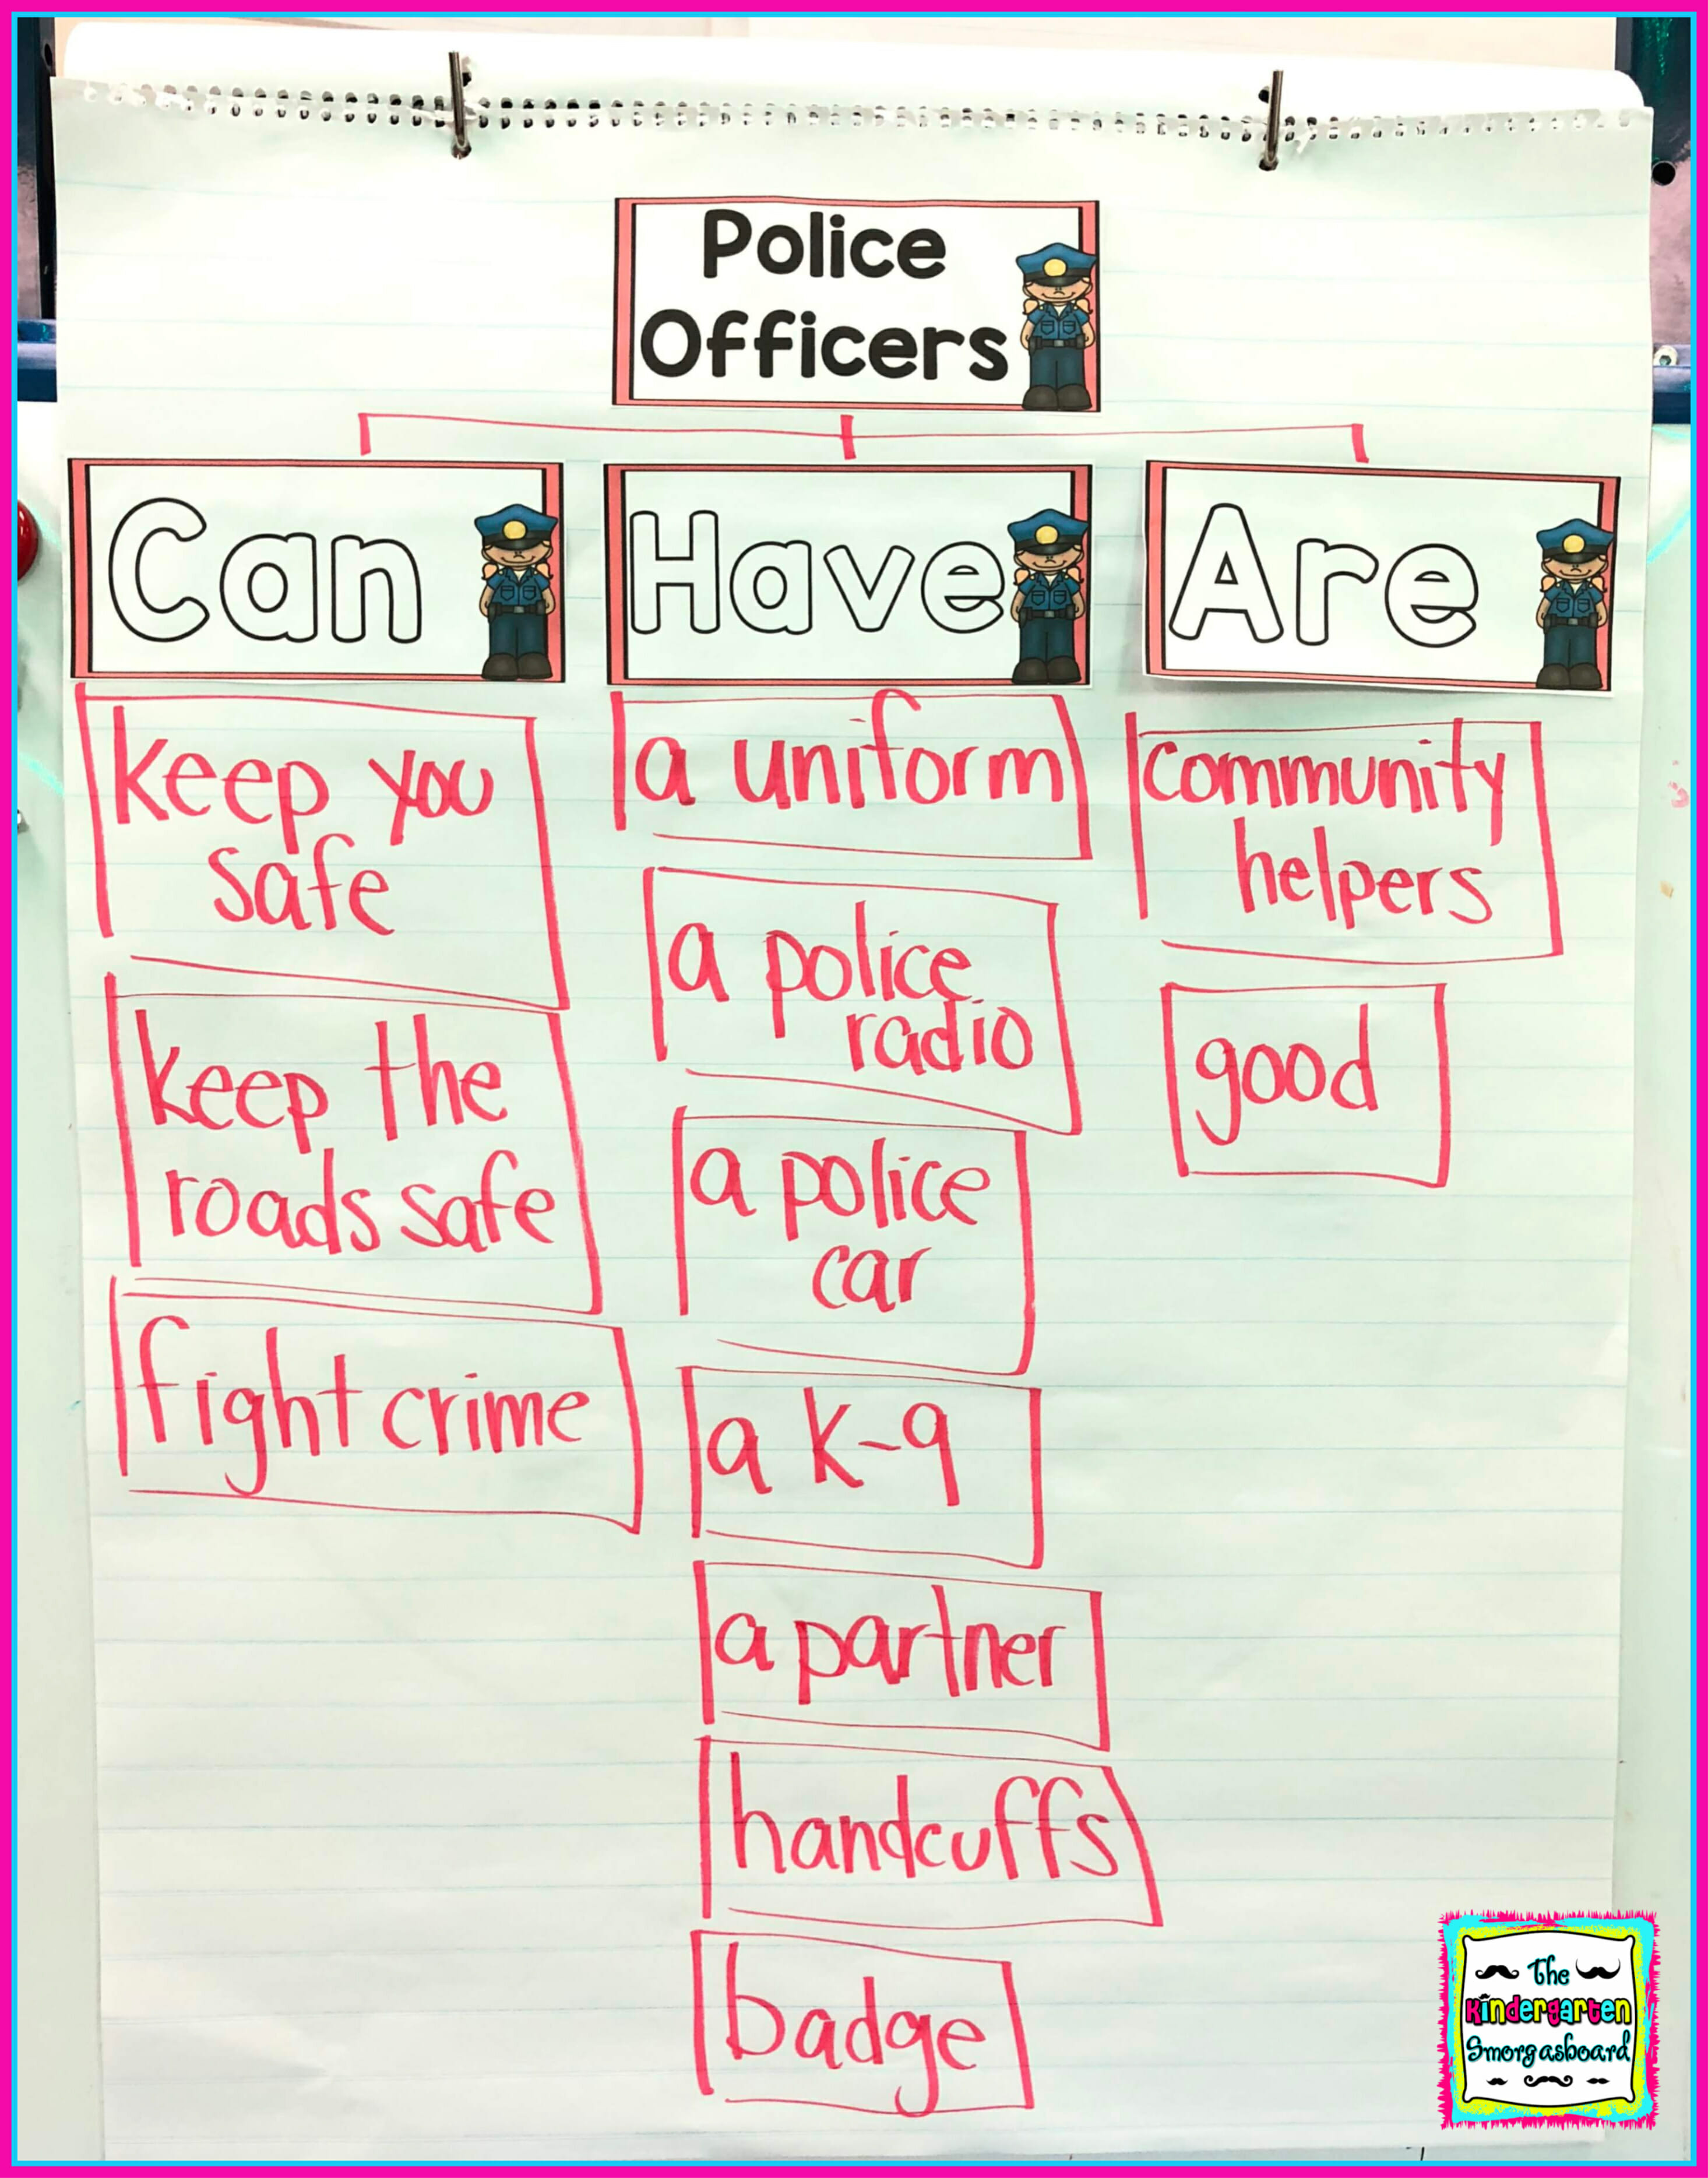 Police
Officers
Can
keep you
safe
keep the
roads safe
fight crime
Have
a uniform
a police
radio
a police
car
a k-9
a partner
handcuffs
badge
Are
community
helpers
good
The
Kindergarten
Smorgasboard